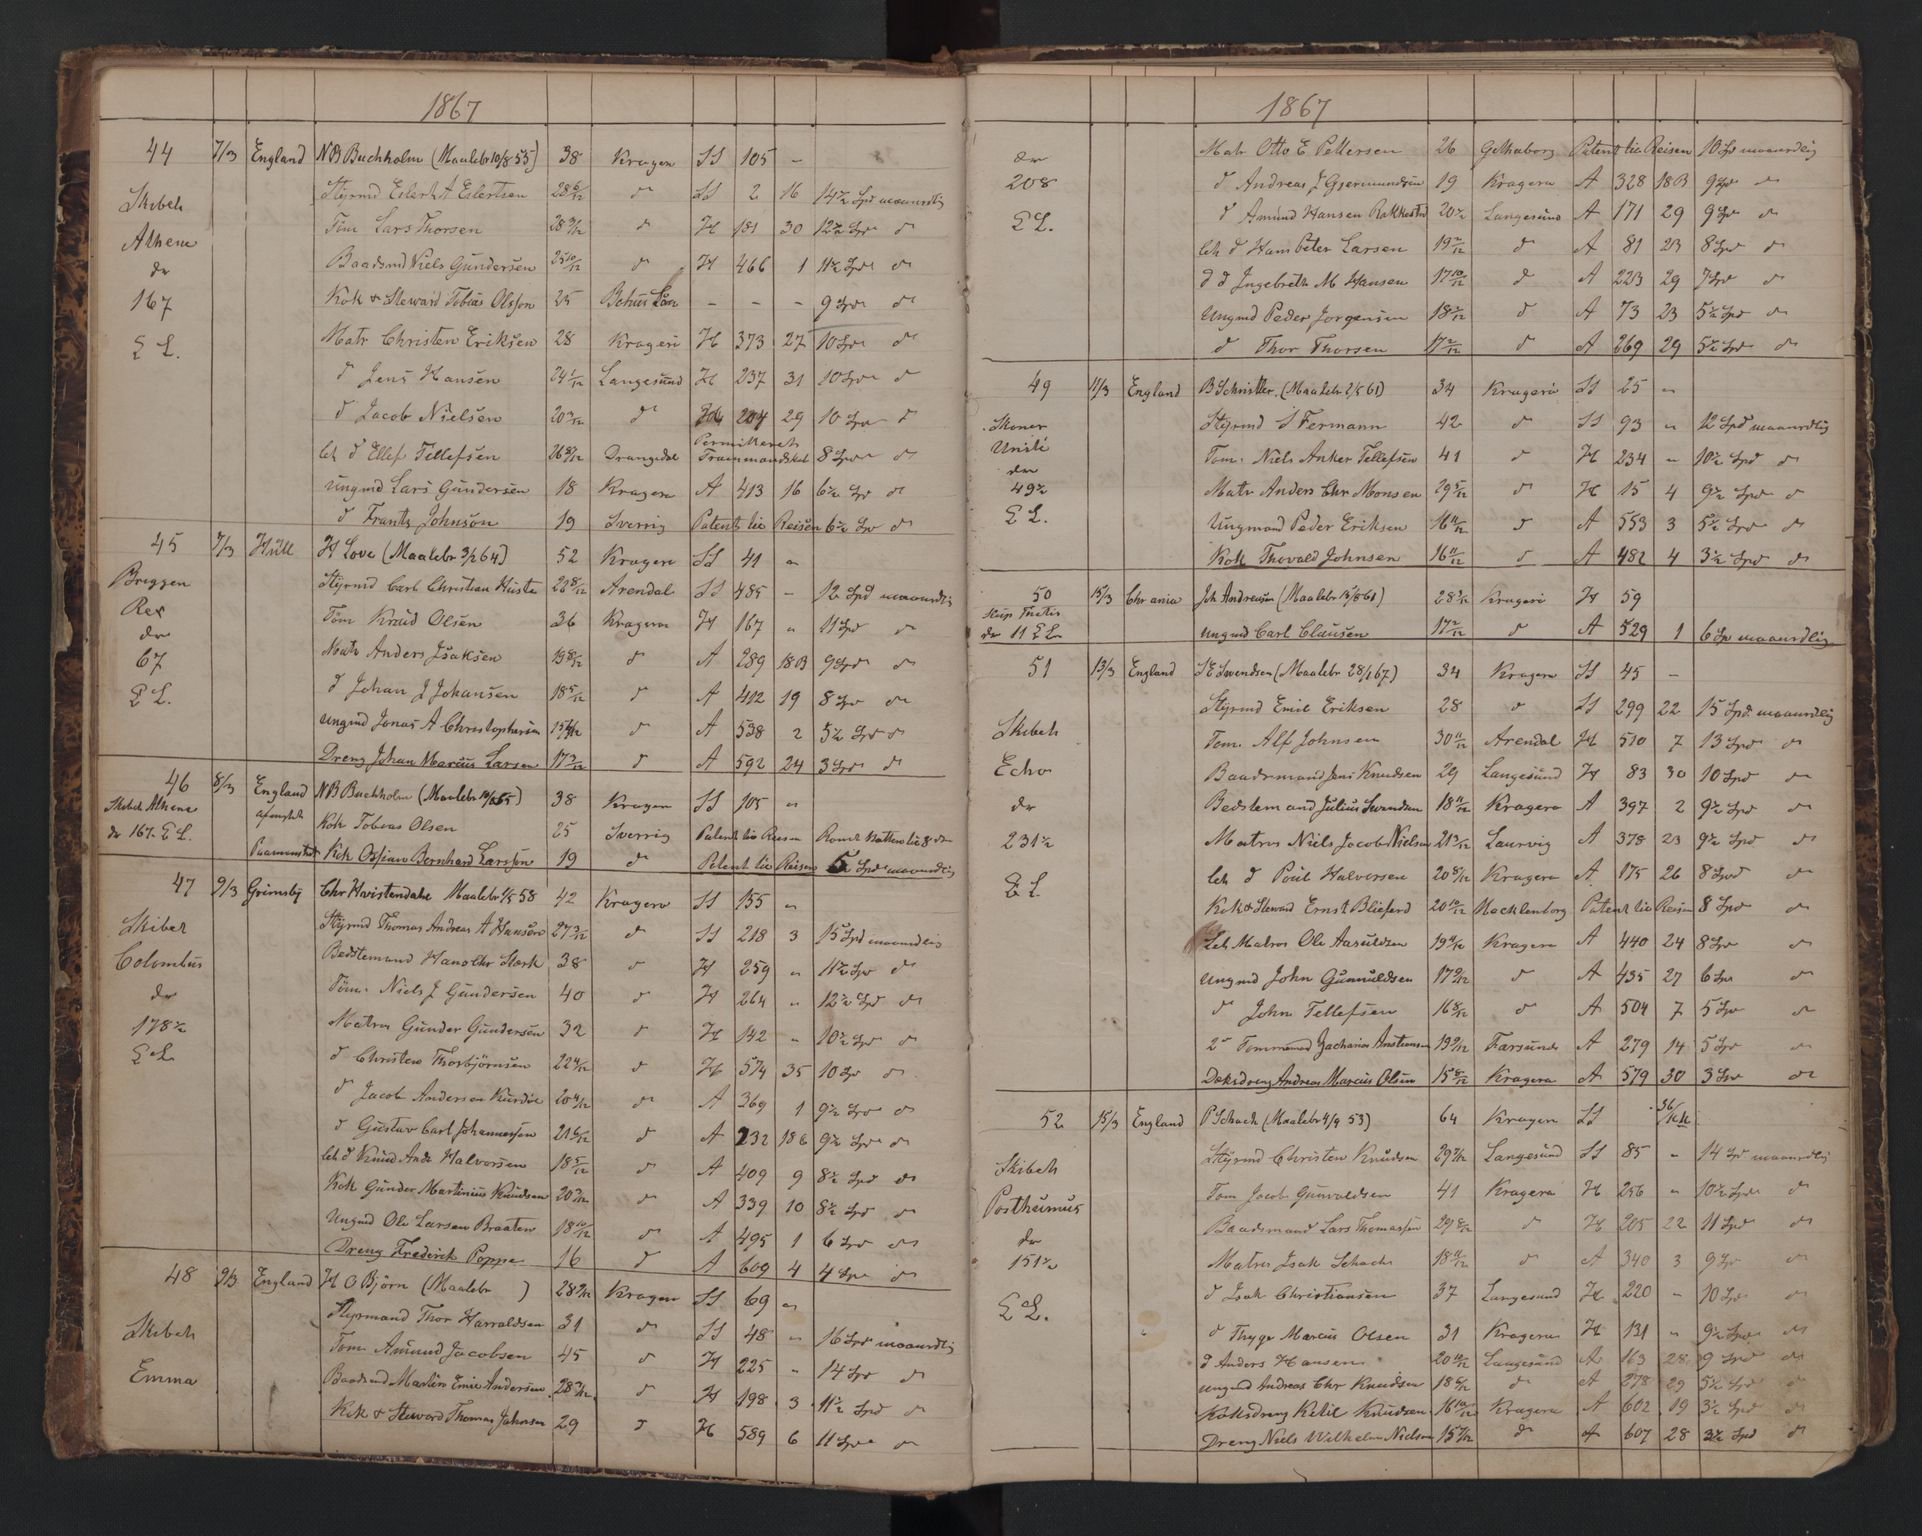 1867
44 7/3 England N B Buchholm (Maalebr 10/8 55) 38 Kragerø SS 105 -
Skibet Styrmd Eilert A Eilertsen 28 6/12 d SS 2 16 14½ Spd maanedlig
Tøm Lars Thorsen 28 3/12 d H 181 30 12½ Spd d
Athene Baadsmd Niels Gundersen 25 10/12 d H 466 1 11½ Spd d
dr
167 Kok & Steward Tobias Olsson 25 Behus Län - - - 9 Spd d
E L. Matr Christen Eriksen 28 Kragerö H 373 27 10 Spd d
d Jens Hansen 24 1/12 Langesund H 237 31 10 Spd d
d Jacob Nielsen 20 3/12 d 204 29 10 Spd d
let d Ellef Tellefsen 26 8/12 Drangedal Permitteret 8 Spd d
Ungmd Lars Gundersen 18 Kragerø A 413 16 6½ Spd d
d Frantz Johnson 19 Sverrig Patent til Reisen 6½ Spd d
45 7/3 Hull H Love (Maalebr 3/2 64) 52 Kragerø SS 41 -
Breggen Styrmd Carl Christian 22 8/12 Arendal SS 485 - 12 Spd maanedlig
Rex Tøm Knud Olsen 36 Kragerø H 167 - 11 Spd d
dr
67 Matr Anders Isaksen 19 8/12 d A 289 18B 9 Spd d
E L. d Johan J Johansen 18 5/12 d A 412 19 8 Spd d
Ungmd Jonas A Christophersen 15 d A 538 2 5½ Spd d
Dreng Johan Marcus Larsen 17 3/12 d A 592 24 3 Spd d
46 8/3 England N B Buchholm (Maalebr 38 Kragerø SS 105 -
Skibet Athene afmøstret Kok Tobias Olsen 25 Sverrig Patent til Reisen
dr 167. E L. Paamønstret Kok Ossian Bernhard Larsson 19 d Patent til Reisen Spd maanedlig
47 9/3 Grimsby Chr Hvistendahl Maalebr 58 42 Kragerø SS 155 -
Skibet Styrmd Thomas Andreas A Hansen 27 3/12 d SS 218 3 15 Spd maanedlig
Colombus Bedstemand Hans Chr Stærk 38 d H 259 - 11½ Spd d
dr Tøm. Niels J Gundersen 40 d H 264 - 12½ Spd d
178½ Matros Gunder Gundersen 32 d H 142 - 10½ Spd d
E L. d Christen Thorbjörnsen 22 4/12 d H 574 35 10 Spd d
d Jacob Andersen 20 4/12 d A 369 1 9½ Spd d
d Gustav Carl Johannessen 21 6/12 d A 232 186 9½ Spd d
let d Knud And. Halvorsen 18 5/12 d A 409 9 8½ Spd d
Kok Gunder Martinius Knudsen 20 d A 339 10 8½ Spd d
Ungmd Ole Larsen Braaten 18 10/12 d A 495 1 6 Spd d
Dreng Frederik Poppe 16 d A 609 4 4 Spd d
48 9/3 England H O Björn (Maalebr ) 28 Kragerø SS 69 -
Skibet Styrmand Thor Harraldsen 31 d SS 48 - 16 Spd maanedlig
Tøm Amund Jacobsen 45 d H 225 - 14 Spd d
Emma Baadsmd Martin Emil Andersen 28 d H 198 3 11½ Spd d
Kok & Steward Thomas Johnsen 29 d H 589 6 11 Spd d
1867
dr Matr Otto E Pettersen 26 Gothaborg Patent til Reisen 10 Spd maanedlig
208 d Andreas J Gjermundsen 19 Kragerø A 328 18B 9 Spd d
E L. d Amund Hansen Rakkestad 20½ Langesund A 171 29 9 Spd d
let d Hans Peter Larsen 19 d A 81 23 8 Spd d
d d Ingebreth M Hansen 17 10/12 d A 223 29 7 Spd d
Ungmd Peder Jorgensen 18 d A 73 23 5½ Spd d
d Thor Thorsen 17 2/12 d A 269 29 5½ Spd d
49 11/3 England B Schritter. (Maalebr 61) 34 Kragerö SS 25 -
Skoner Styrmd S Fermann 42 d SS 93 - 12 Spd maanedlig
dr Tøm. Niels Anker Tellefsen 41 d H 234 - 10½ Spd d
49½ Matr Anders Chr Monsen 29 5/12 d H 15 4 9½ Spd d
E L. Ungmand Peder Eriksen 16 11/12 d A 553 3 5½ Spd d
Kok Thovald Johnsen 16 11/12 d A 482 4 3½ Spd d
50 15/3 Chrania Joh Andreasen (Maalebr 61) 28 3/12 Kragerö H 59
dr 11 E L. Ungmd Carl Clausen 17 2/12 d A 529 1 6 Spd maanedlig
51 13/3 England S E Svendsen (Maalebr 28/1 67) 34 Kragerø SS 45 -
Skibet Styrmd Emil Eriksen 28 d SS 299 22 15 Spd. maanedlig
Tøm. Alf Johnsen 30 11/12 Arendal H 510 7 13 Spd d
Echo Baadsmand Jens Knudsen 29 Langesund H 83 30 10 Spd d
dr Bedstemand Julius Svendsen 18 11/12 Kragerø A 397 2 9½ Spd d
231½ Matros Niels Jacob Nielsen 21 3/12 Laurvig A 378 23 9½ Spd d
E L. let d Poul Halvorsen 20 8/12 Kragerø A 175 26 8 Spd d
Kok & Steward Ernst Bliefert 20 10/12 Mecklenborg Patent til Reisen 8 Spd d
Let Matros Ole Aasuldsen 19 Kragerø A 440 24 8 Spd d
Ungmd John Gunnuldsen 17 9/12 d A 435 27 6 Spd d
d John Tellefsen 16 8/12 d A 504 7 5 Spd d
2d Tømmermd Zacharias 19 Farsund A 279 14 5 Spd d
Dæksdreng Andreas Marcus Olsen 15 8/12 Kragerø A 579 30 3 Spd d
52 15/3 England P Schack (Maalebr 4/9 53) 64 Kragerø SS
Skibet Styrmd Christen Knudsen 29 Langesund SS 85 - 14 Spd maanedlig
Posthumus Tøm Jacob Gunvaldsen 41 Kragerø H 256 - 10½ Spd d
dr Baadsmand Lars Thomassen 29 8/12 d H 205 22 11 Spd d
151½ Matros Isak Schack 18 11/12 d A 340 3 9 Spd d
E L. d Isak Christiansen 37 Langesund H 220 - 10 Spd d
d Thyge Marcus Olsen 31 Kragerø H 131 - 9½ Spd d
d Anders Hansen 20 10/12 Langesund A 163 28 9 Spd d
Ungmd Andreas Chr Knudsen 18 6/12 d A 278 29 5½ Spd d
Koksdreng Ketil Knudsen 16 10/12 Kragerø A 602 19 3½ Spd d
Dreng Niels Wilhelm Nielsen 15 d A 607 28 3½ Spd d